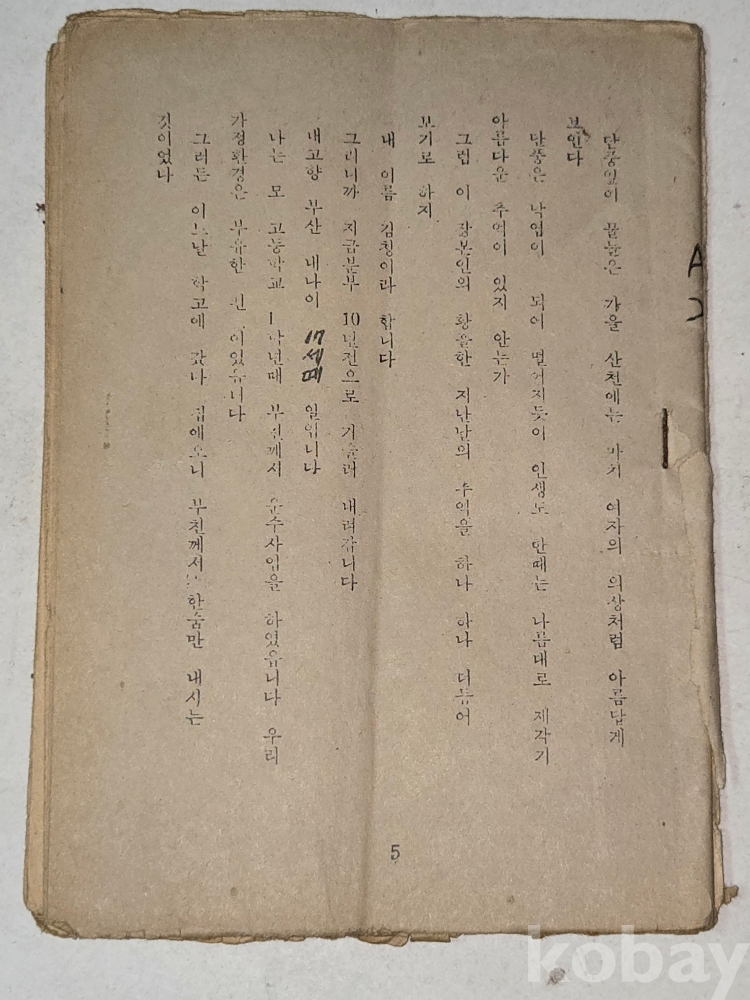 단풍잎이 물들은 가을 산천에는 마치 여자의 의상처럼 아름답게
보인다
단풍은 낙엽이 되어 떨어지듯이 인생도 한때는 나름대로 제각기
아름다운 추억이 있지 안는가
그럼 이 장본인의 황홀한 지난날의 추억을 하나 하나 더듬어
보기로 하지
내 이름 김칭이라 합니다
그러니까 지금분부 10년전으로 거슬러 내려갑니다
내고향 부산 내나이 17세때 일입니다
나는 모 고등학교 1학년때 부친께서 운수사업을 하였읍니다 우리
가정환경은 부유한 편이었읍니다
그러든 어느날 학교에 갔다 집에오니 부친께서 한숨만 내시는
것이었다
5
kobay